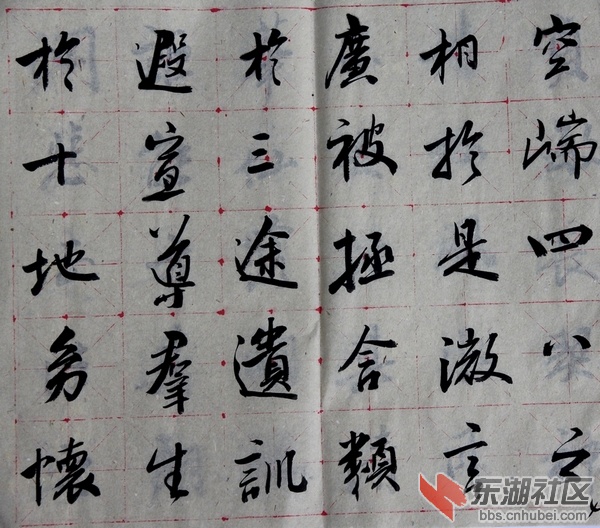 空端四八之
相於是微言
廣被拯含類
於三途遺訓
遐宣導群生
於十地多懷
东湖社区
bbs.cnhubei.com